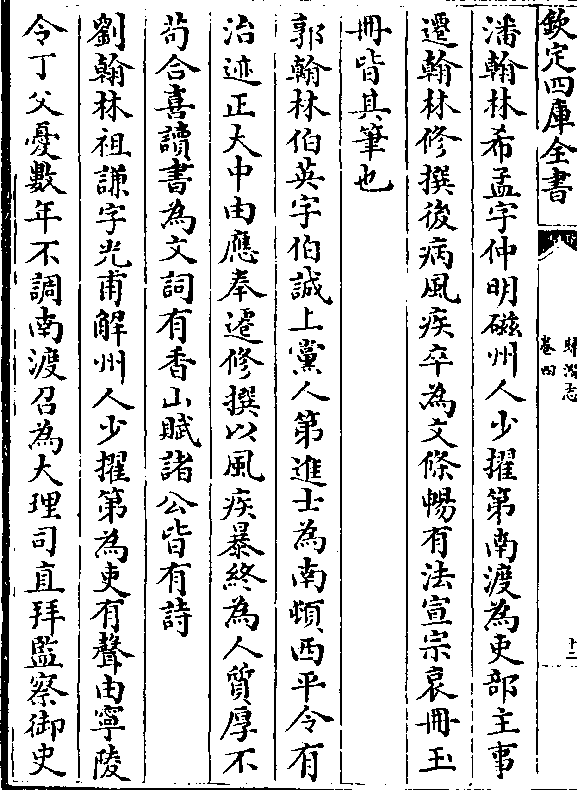 欽定四庫全書
歸潛志
卷四
十二
潘翰林希孟字仲明磁州人少擢第南渡為吏部主事
遷翰林修撰後病風疾卒為文條暢有法宣宗哀冊玉
冊皆其筆也
郭翰林伯英字伯誠上黨人第進士為南頓西平令有
治迹正大中由應奉遷修撰以風疾暴終為人質厚不
苟合喜讀書為文詞有香山賦諸公皆有詩
劉翰林祖謙字光甫解州人少擢第為吏有聲由寧陵
令丁父憂數年不調南渡召為大理司直拜監察御史